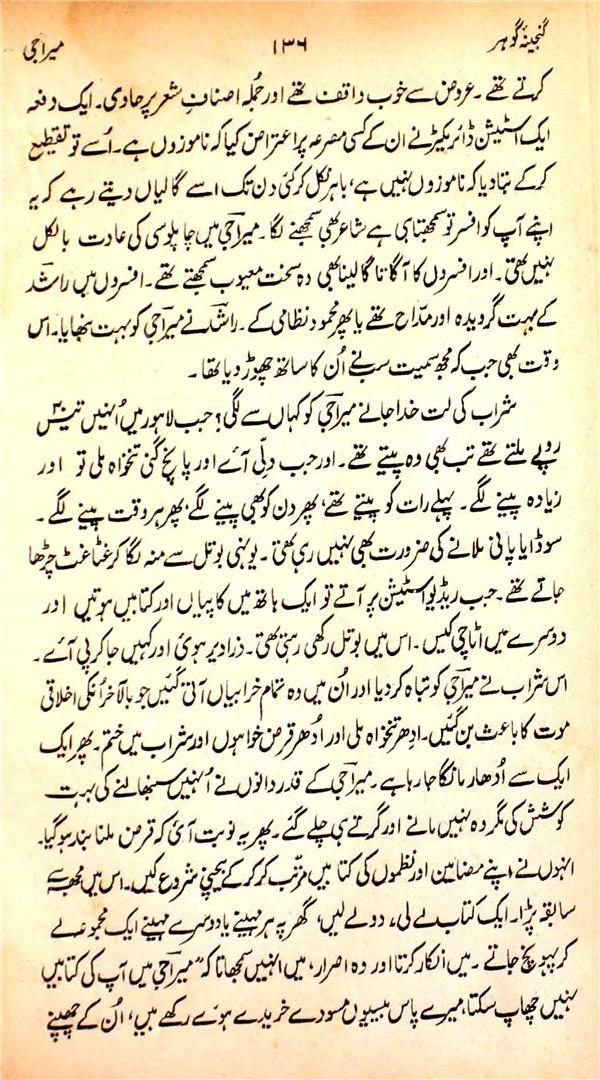 گنجینۂ گوہر ۱۳۶ میراجی
کرتے تھے۔ عروض سے خوب واقف تھے اور جُملہ اصنافِ شعر پر حاوی۔ ایک دفعہ
ایک اسٹیشن ڈائریکٹر نے ان کے کسی مصرعہ پر اعتراض کیا کہ ناموزوں ہے۔ اُسے تو تقطیع
کر کے بتادیا کہ ناموزوں نہیں ہے، باہر نکل کر کئی دن تک اسے گالیاں دیتے رہے کہ یہ
اپنے آپ کو افسر تو سمجھتا ہی ہے شاعر بھی سمجھنے لگا۔ میراجی میں چاپلوسی کی عادت بالکل
نہیں تھی۔ اور افسروں کا آگا تاگا لینا بھی وہ سخت معیوب سمجھتے تھے۔ افسروں میں راشد
کے بہت گرویدہ اور مدّاح تھے یا پھر محمود نظامی کے۔ راشد نے میراجی کو بہت نبھایا۔ اس
وقت بھی جب کہ مجھ سمیت سب نے اُن کا ساتھ چھوڑ دیا تھا۔
شراب کی لت خدا جانے میراجی کو کہاں سے لگی؟ جب لاہور میں اُنہیں تیس۳۰
روپے ملتے تھے تب بھی وہ پیتے تھے۔ اور جب دلّی آئے اور پانچ گنی تنخواہ ملی تو اور
زیادہ پینے لگے۔ پہلے رات کو پیتے تھے، پھر دن کو بھی پینے لگے، پھر ہر وقت پینے لگے۔
سوڈا یا پانی ملانے کی ضرورت بھی نہیں رہی تھی۔ یونہی بوتل سے منہ لگا کر غٹاغٹ چڑھا
جاتے تھے۔ جب ریڈیو اسٹیشن پر آتے تو ایک ہاتھ میں کاپیاں اور کتابیں ہوتیں اور
دوسرے میں اٹاچی کیس۔ اس میں بوتل رکھی رہتی تھی۔ ذرا دیر ہوئی اور کہیں جا کر پی آئے۔
اس شراب نے میراجی کو تباہ کر دیا اور اُن میں وہ تمام خرابیاں آتی گئیں جو بالآخر اُنکی اخلاقی
موت کا باعث بن گئیں۔ ادھر تنخواہ ملی اور اُدھر قرض خواہوں اور شراب میں ختم۔ پھر ایک
ایک سے اُدھار مانگا جا رہا ہے۔ میراجی کے قدر دانوں نے اُنہیں سنبھالنے کی بہت
کوشش کی مگر وہ نہیں مانے اور گرتے ہی چلے گئے۔ پھر یہ نوبت آئی کہ قرض ملنا بند ہو گیا۔
انہوں نے اپنے مضامین اور نظموں کی کتابیں مرتّب کر کر کے بیچنی شروع کیں۔ اس میں مجھ سے
سابقہ پڑا۔ ایک کتاب لے لی، دو لے لیں، گھر پہ ہر مہینے یا دوسرے مہینے ایک مجموعہ لے
کر پہونچ جاتے۔ میں انکار کرتا اور وہ اصرار، میں انہیں سمجھاتا کہ ”میراجی میں آپ کی کتابیں
نہیں چھاپ سکتا، میرے پاس بیسیوں مسودے خریدے ہوئے رکھے ہیں، اُن کے چھپنے